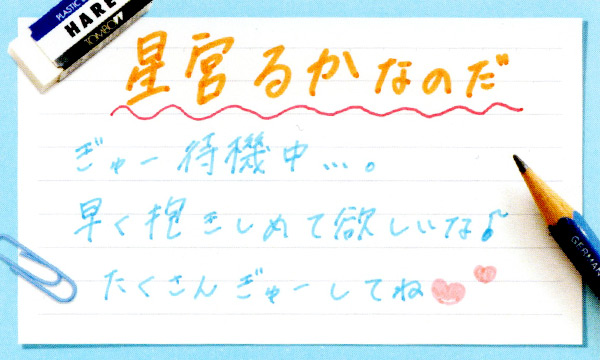 PLASTIC
HARE
TOMBOW
星宮るかなのだ
ぎゅー待機中...。
早く抱きしめて欲しいな♪
たくさんぎゅーしてね♥♥
GERMAN